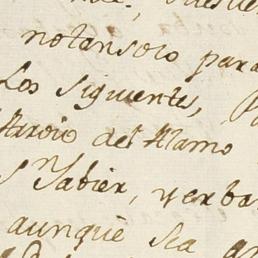 notansolo para
Los siguientes, P
del Alamo
S Tabier, yerba
aunque sea